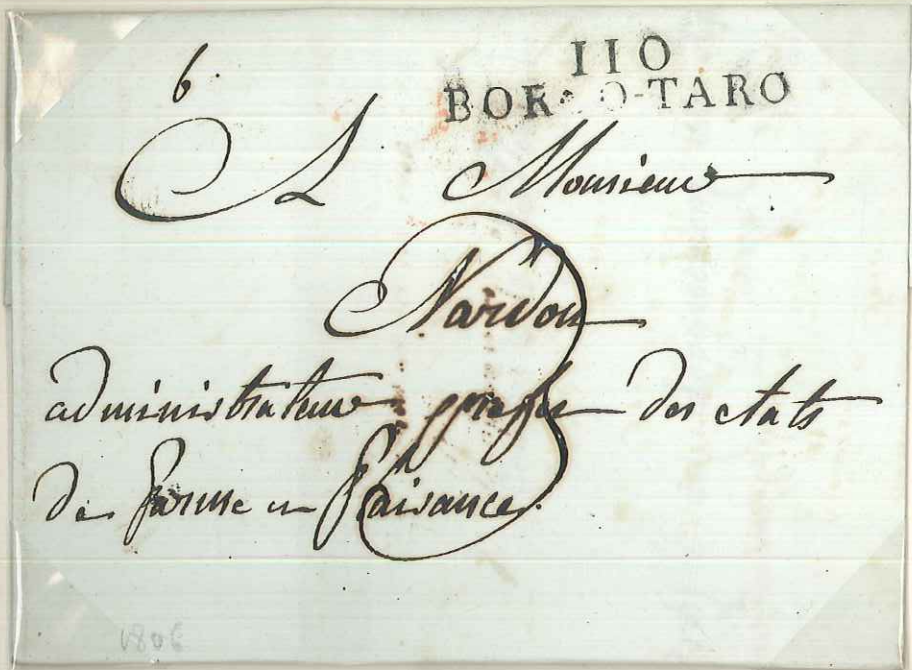 6.
110
BORGO-TARO
A Monsieur
Nardon
administrateur prefet des etats
de Parme et Plaisance.
3
1806